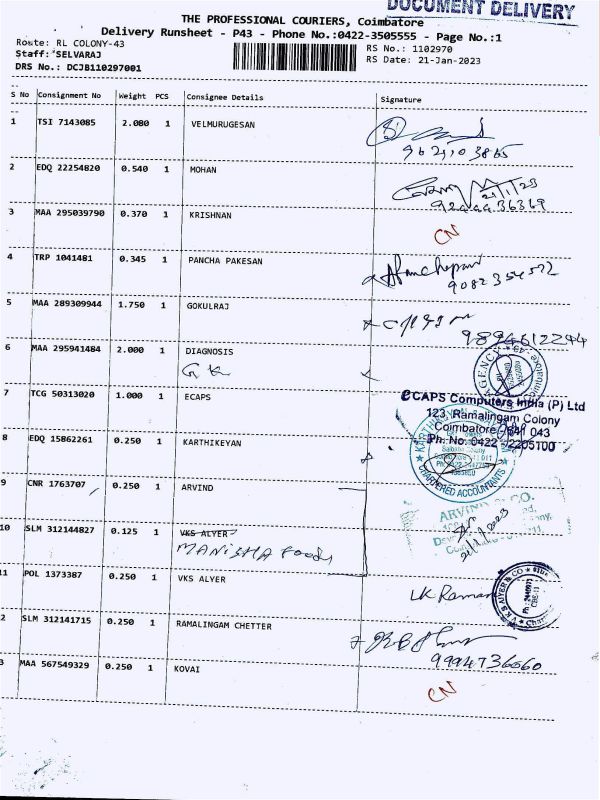 DOCUMENT DELIVERY
THE PROFESSIONAL COURIERS, Coimbatore
Delivery Runsheet - P43 - Phone No.:0422-3505555 - Page No.:1
Route: RL COLONY-43
RS No.: 1102970
Staff: SELVARAJ
RS Date: 21-Jan-2023
DRS No.: DCJB110297001
S No Consignment No Weight PCS Consignee Details Signature
1 TSI 7143085 2.080 1 VELMURUGESAN
2 EDQ 22254820 0.540 1 MOHAN
21/1/23
3 MAA 295039790 0.370 1 KRISHNAN
CN
4 TRP 1041481 0.345 1 PANCHA PAKESAN
5 MAA 289309944 1.750 1 GOKULRAJ
9894612244
6 MAA 295941484 2.000 1 DIAGNOSIS
GK
7 TCG 50313020 1.000 1 ECAPS
eCAPS Computers India (P) Ltd
123, Ramalingam Colony
Coimbatore - 641 043
Ph. No: 0422 - 2205100
8 EDQ 15862261 0.250 1 KARTHIKEYAN
CHARTERED ACCOUNTANTS
9 CNR 1763707 0.250 1 ARVIND
10 SLM 312144827 0.125 1 VKS ALYER
MANISHA Foods
11 POL 1373387 0.250 1 VKS ALYER
LK Raman
2 SLM 312141715 0.250 1 RAMALINGAM CHETTER
9994736060
3 MAA 567549329 0.250 1 KOVAI
CN